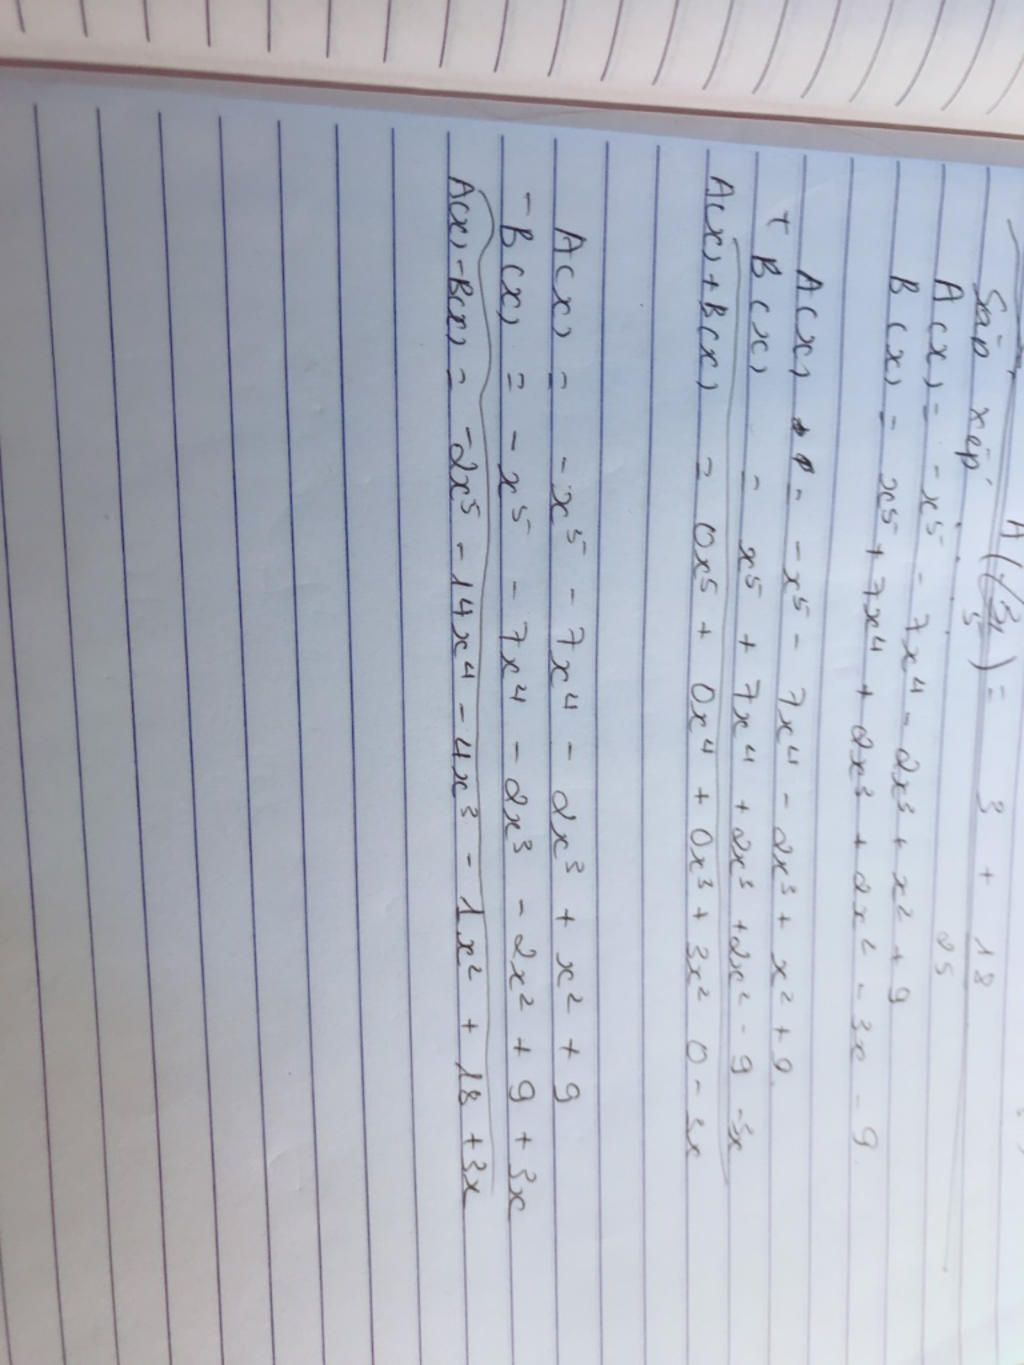 A(3/5) = 3 + 18/25
Sắp xếp
A(x) = -x⁵ - 7x⁴ - 2x³ + x² + 9
B(x) = x⁵ + 7x⁴ + 2x³ + 2x² - 3x - 9
A(x) = -x⁵ - 7x⁴ - 2x³ + x² + 9
+ B(x) = x⁵ + 7x⁴ + 2x³ + 2x² - 9 - 3x
A(x) + B(x) = 0x⁵ + 0x⁴ + 0x³ + 3x² 0 - 3x
A(x) = -x⁵ - 7x⁴ - 2x³ + x² + 9
- B(x) = - x⁵ - 7x⁴ - 2x³ - 2x² + 9 + 3x
A(x) - B(x) = -2x⁵ - 14x⁴ - 4x³ - 1x² + 18 + 3x